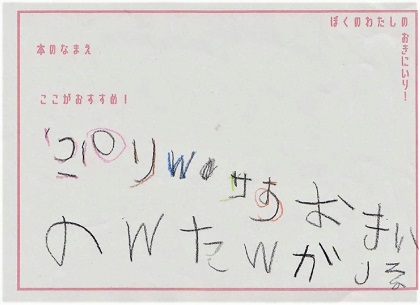 ぼくのわたしの
おきにいり！
本のなまえ
ここがおすすめ！
りW おまい
のWたWが